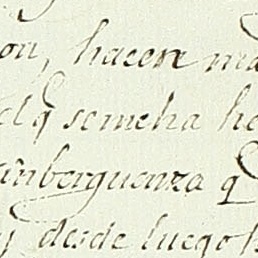 on, hacen ma
elq̃ semeha he
inberguenza q̃
y desde luego